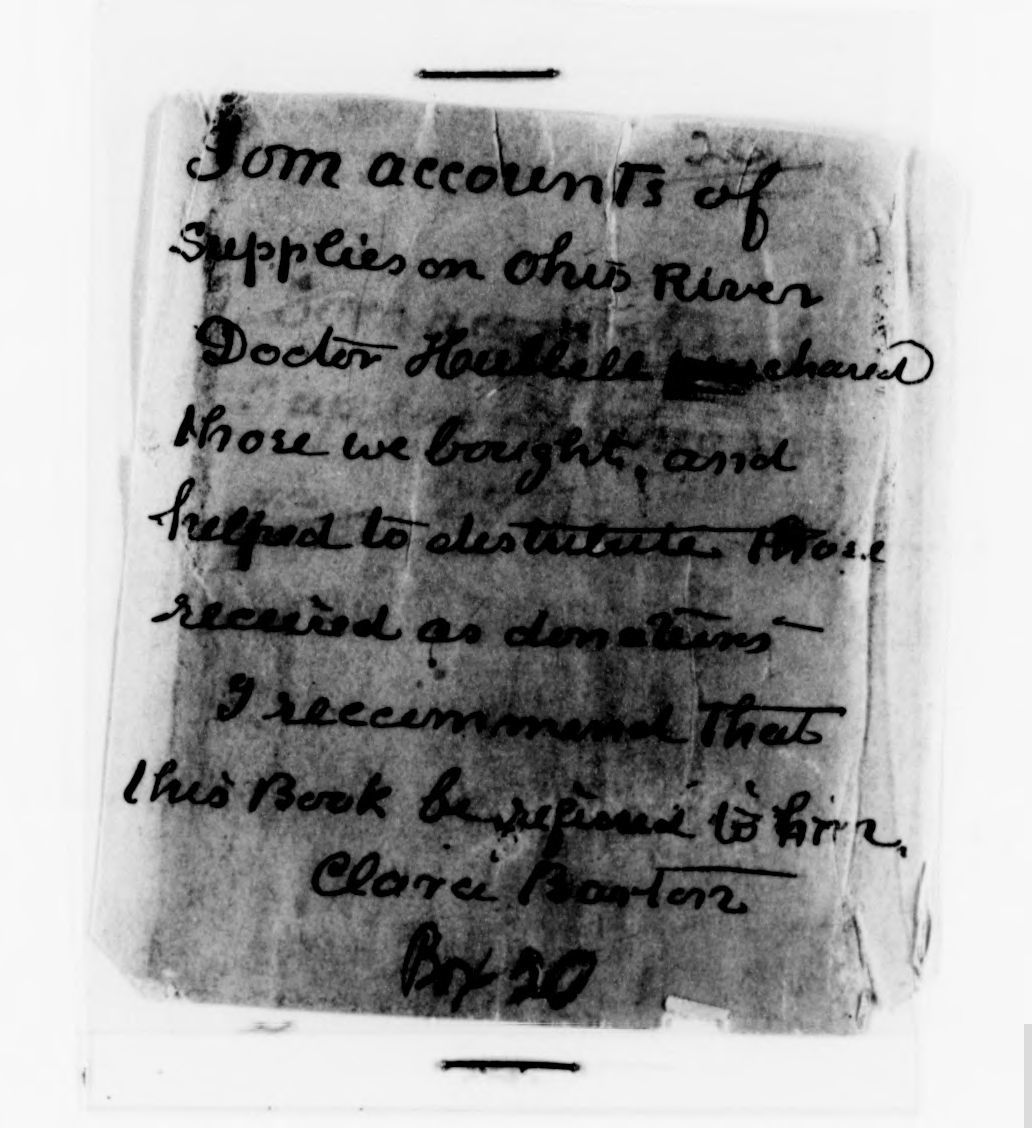 20
Som accounts of
Supplies on Ohio River
Doctor Hubbell purchased
those we bought, and
helped to distribute those
received as donations
I reccommend that
this Book be refered to him.
Clara Barton
Box 20